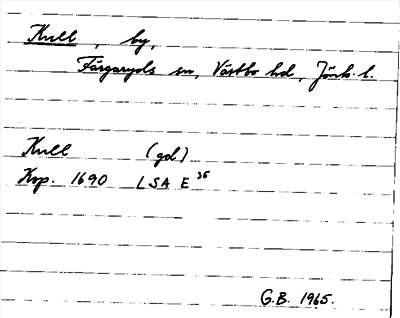 Kull, by,
Färgaryds sn, Västbo hd, Jönk. l.
Kull (gd)
Kop. 1690 LSA E 35
G.B. 1965.